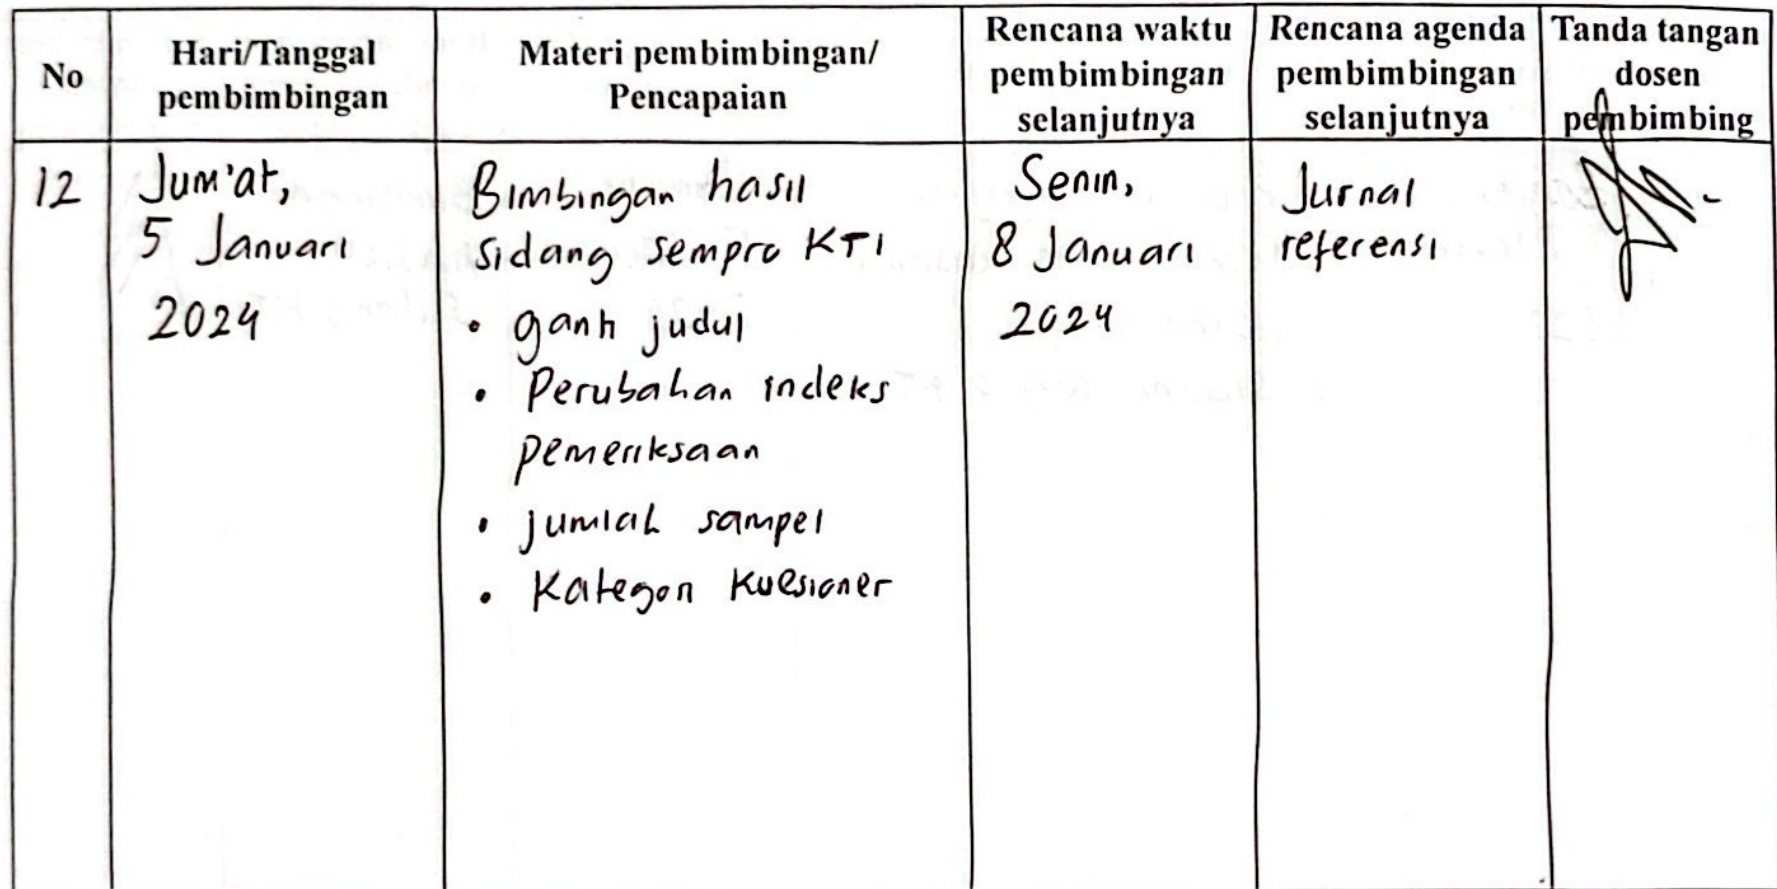 No
Hari/Tanggal
pembimbingan
Materi pembimbingan/
Pencapaian
Rencana waktu
pembimbingan
selanjutnya
Rencana agenda
pembimbingan
selanjutnya
Tanda tangan
dosen
pembimbing
12
Jum'at,
5 Januari
2024
Bimbingan hasil
sidang sempro KTI
• ganti judul
• Perubahan indeks
pemeriksaan
• jumlah sampel
• Kategori Kuesioner
Senin,
8 Januari
2024
Jurnal
referensi